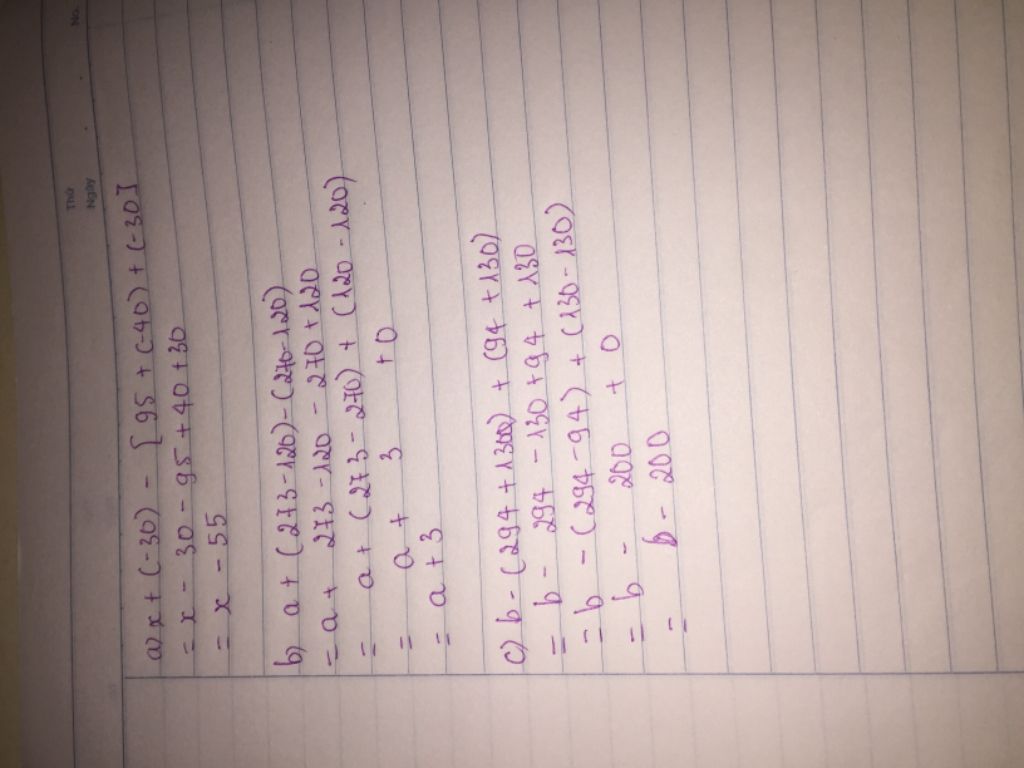 No.
Thứ
Ngày
a) x + (-30) - [95 + (-40) + (-30]
= x - 30 - 95 + 40 + 30
= x - 55
b) a + (273 - 120) - (270 - 120)
= a + 273 - 120 - 270 + 120
= a + (273 - 270) + (120 - 120)
= a + 3 + 0
= a + 3
c) b - (294 + 130) + (94 + 130)
= b - 294 - 130 + 94 + 130
= b - (294 - 94) + (130 - 130)
= b - 200 + 0
= b - 200